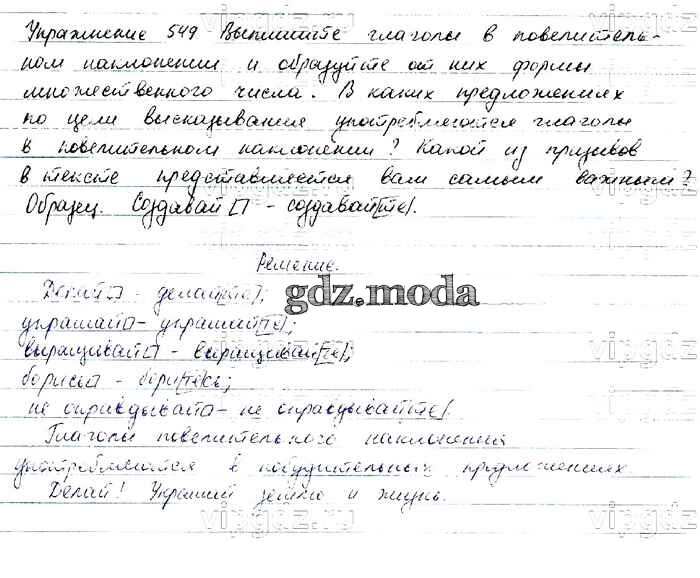 vipgdz.ru vipgdz.ru
Упражнение 549 Выпишите глаголы в повелитель-
ном наклонении и образуйте от них формы
множественного числа. В каких предложениях
по цели высказывания употребляются глаголы
в повелительном наклонении? Какой из призывов
в тексте представляется вам самым важным?
Образец. Создавай□ - создавай[те].
Решение.
Делай□ - делай[те];
gdz.moda
украшай□ - украшай[те];
выращивай□ - выращивай[те];
борись□ - бори[те]сь;
не оправдывай□ - не оправдывай[те].
Глаголы повелительного наклонения
употребляются в побудительных предложениях
Делай! Украшай землю и жизнь.
vipgdz.ru vipgdz.ru